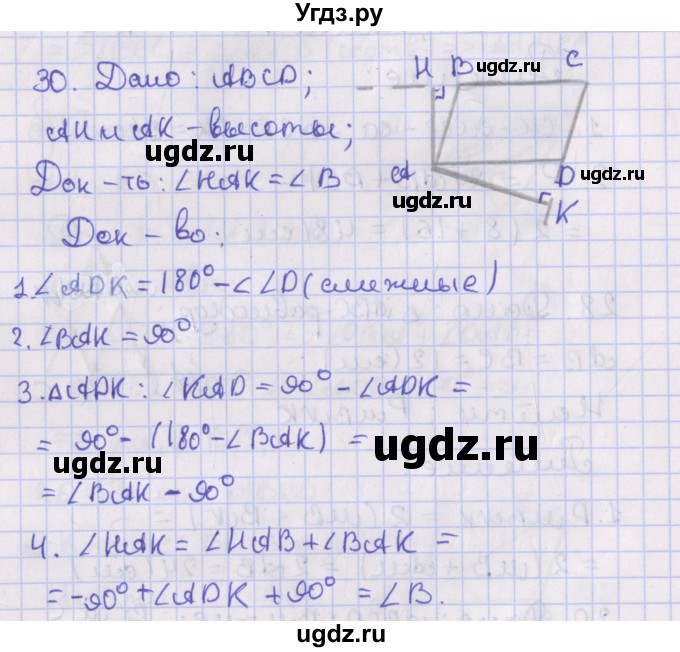 Угдз.ру
30. Дано: ABCD;
H B C
ugdz.ru
ugdz.ru
AH и AK - высоты;
ugdz.ru
A D K
ugdz.ru
Док-ть: ∠HAK = ∠B
Док-во:
1. ∠ADK = 180° - ∠∠D (смежные)
2. ∠BAK = 90°
3. △ADK: ∠KAD = 90° - ∠ADK =
= 90° - (180° - ∠BAK) =
ugdz.ru
ugdz.ru
= ∠BAK - 90°
4. ∠HAK = ∠HAB + ∠BAK =
= -90° + ∠ADK + 90° = ∠B.
ugdz.ru
ugdz.ru